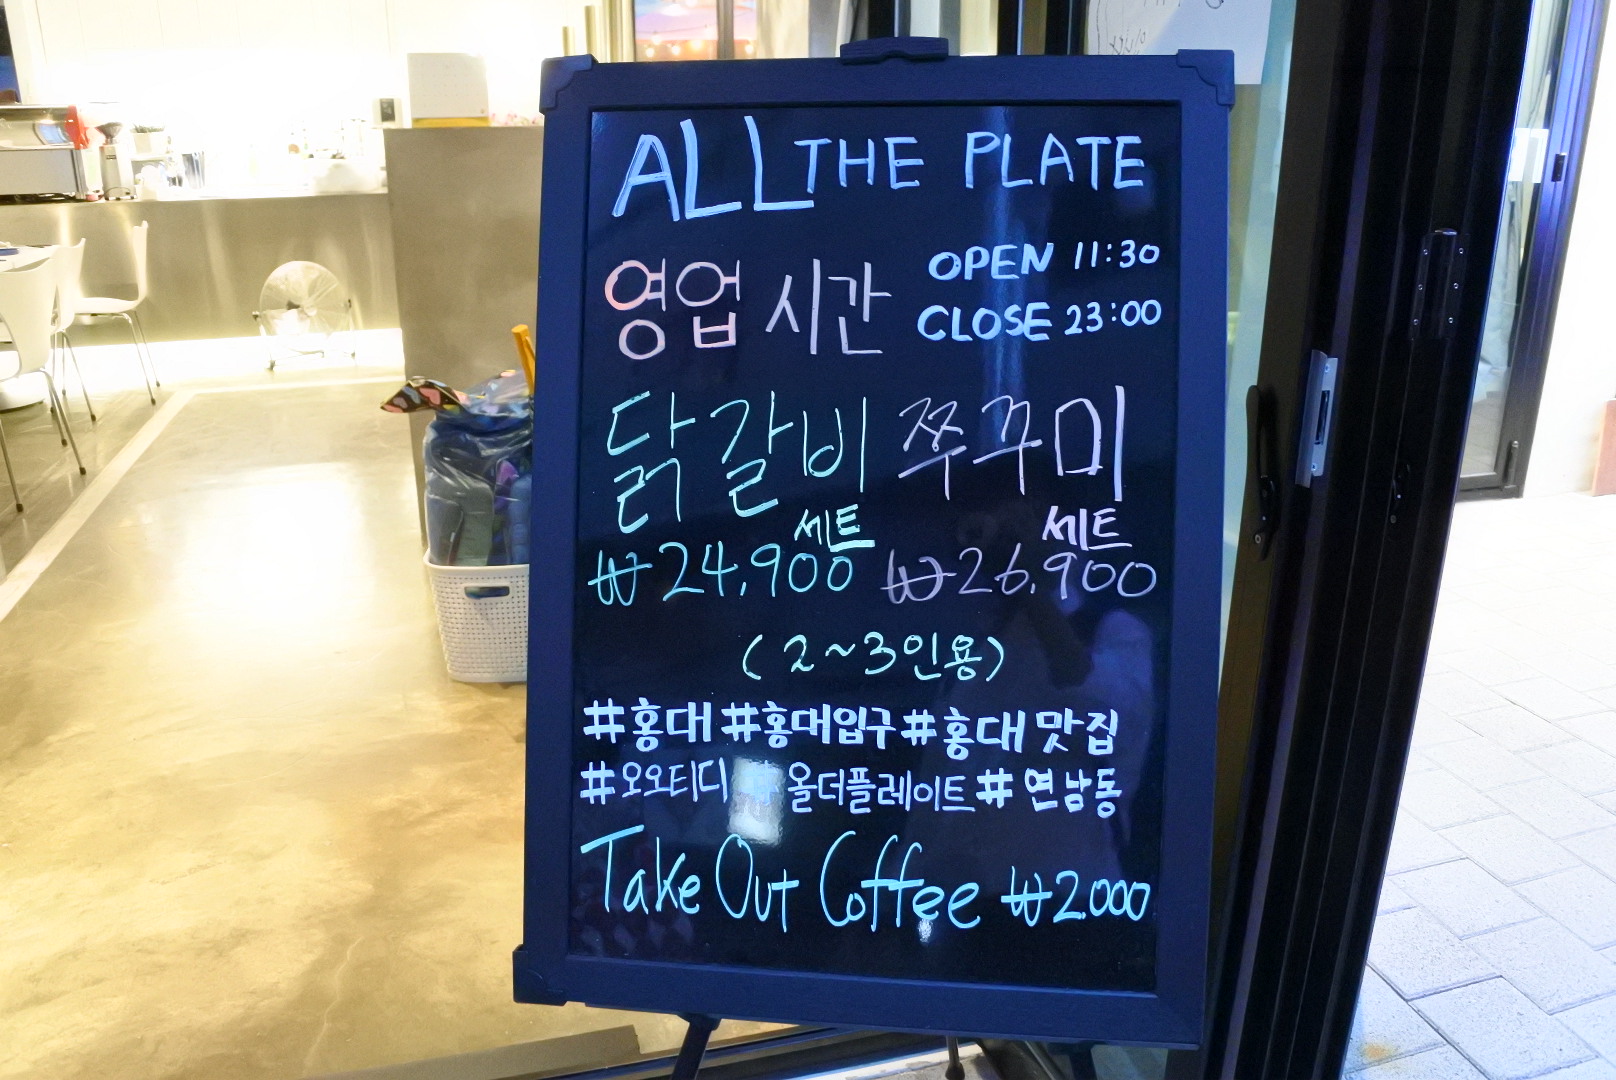 ALL THE PLATE
영업 시간 OPEN 11:30
CLOSE 23:00
닭갈비 쭈꾸미
세트 세트
₩24,900 ₩26,900
(2~3인용)
#홍대 #홍대입구 #홍대 맛집
#오오티디 # 올더플레이트 # 연남동
Take Out Coffee ₩2.000